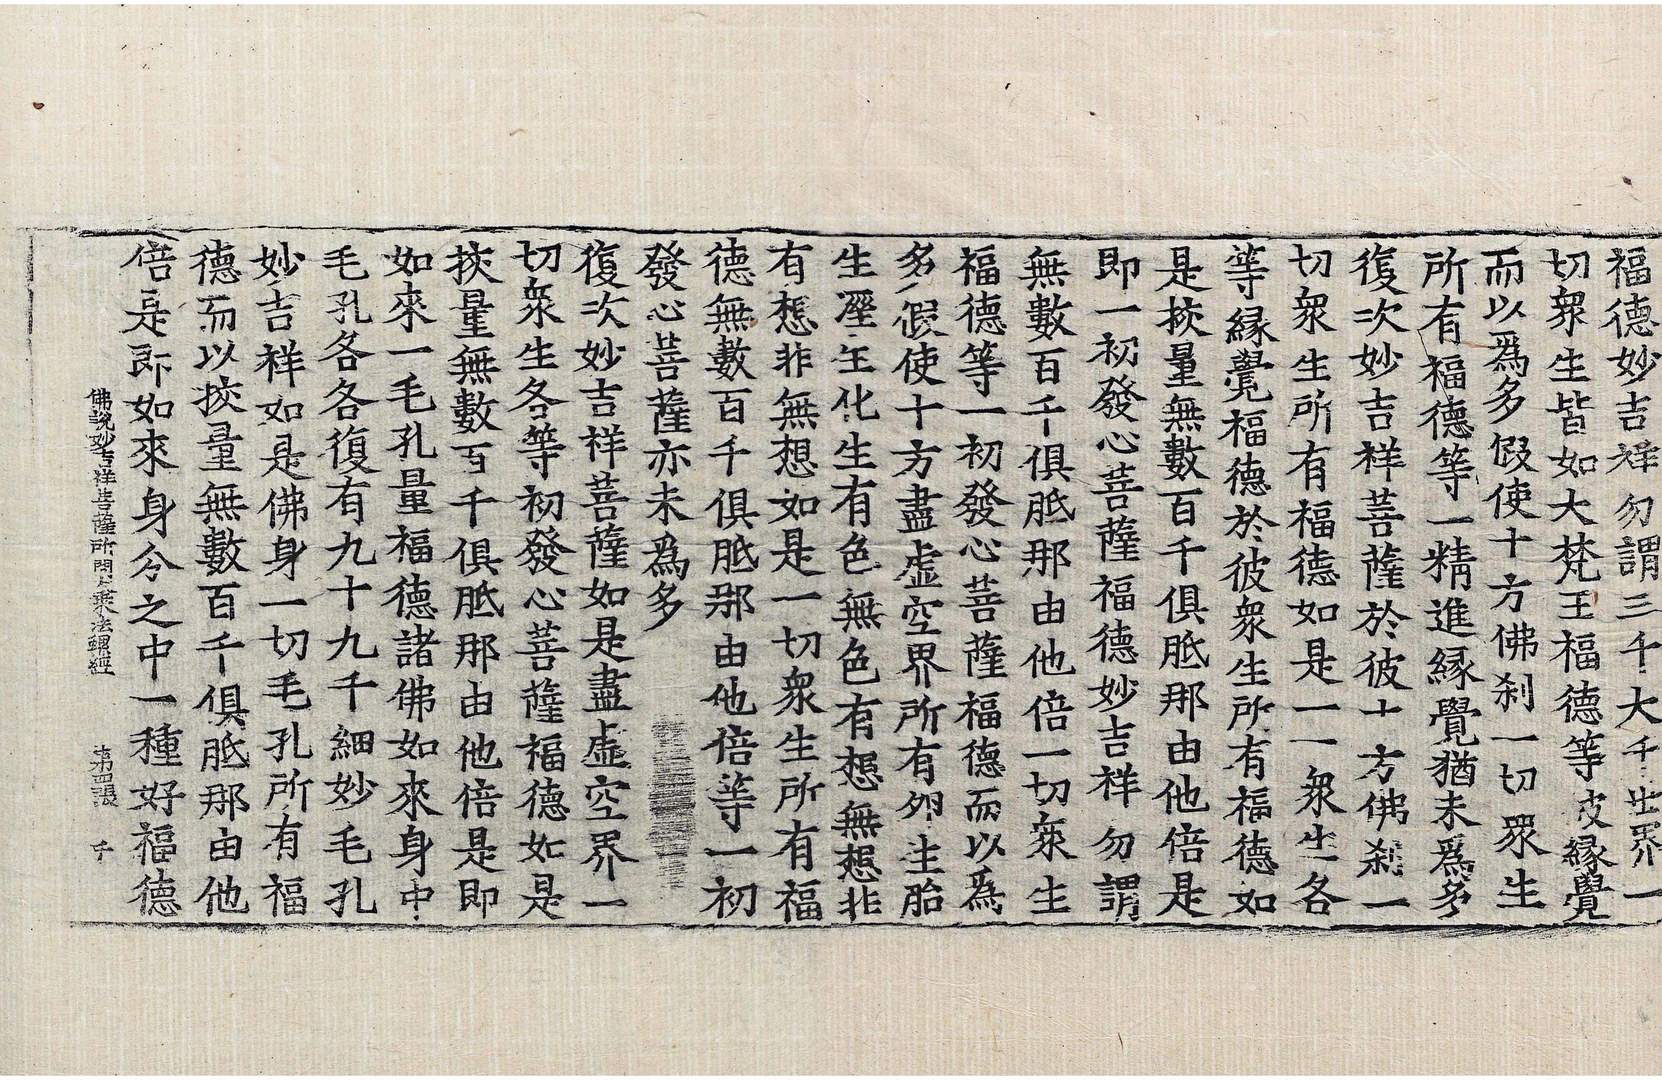 福德妙吉祥勿謂三千大千世界一
切衆生皆如大梵王福德等彼縁覺
而以爲多假使十方佛刹一切衆生
所有福德等一精進縁覺猶未爲多
復次妙吉祥菩薩於彼十方佛刹一
切衆生所有福德如是一一衆生各
等縁覺福德於彼衆生所有福德如
是挍量無數百千俱胝那由他倍是
即一初發心菩薩福德妙吉祥勿謂
無數百千俱胝那由他倍一切衆生
福德等一初發心菩薩福德而以為
多假使十方盡虛空界所有卵生胎
生溼生化生有色無色有想無想非
有想非無想如是一切衆生所有福
德無數百千俱胝那由他倍等一初
發心菩薩亦未爲多
復次妙吉祥菩薩如是盡虛空界一
切衆生各等初發心菩薩福德如是
挍量無數百千俱胝那由他倍是即
如來一毛孔量福德諸佛如來身中
毛孔各各復有九十九千細妙毛孔
妙吉祥如是佛身一切毛孔所有福
德而以挍量無數百千俱胝那由他
倍是即如來身分之中一種好福德
佛說妙吉祥菩薩所問大乘法螺經 第四張 千